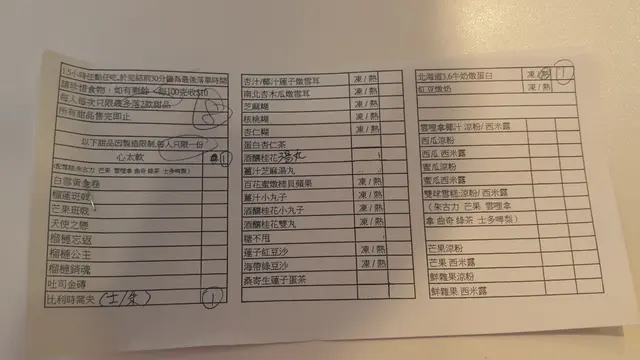 1.5小時任點任吃,於完結前30分鐘為最後落單時間
請珍惜食物，如有剩餘，每100克收$10
每人每次只限最多落2款甜品
所有甜品售完即止
以下甜品因製造限制,每人只限一份
心太軟 1
(配雪糕:朱古力 芒果 雲哩拿 曲奇 綠茶 士多啤梨)
白雪黃金卷
榴槤班戟
芒果班戟
天使之戀
榴槤忘返
榴槤公主
榴槤銷魂
吐司金磚
比利時窩夫 (士/朱) 1
杏汁/椰汁蓮子燉雪耳 凍/熱
南北杏木瓜燉雪耳 凍/熱
芝麻糊 凍/熱
核桃糊 凍/熱
杏仁糊 凍/熱
蛋白杏仁茶
酒釀桂花湯丸
薑汁芝麻湯丸
百花蜜燉柿貝蘋果 凍/熱
薑汁小丸子 凍/熱
酒釀桂花小丸子 凍/熱
酒釀桂花雙丸 凍/熱
糖不甩
蓮子紅豆沙 凍/熱
海帶綠豆沙 凍/熱
桑寄生蓮子蛋茶
北海道3.6牛奶燉蛋白 凍/熱 1
紅豆燉奶 凍/熱
雲哩拿椰汁 涼粉/西米露
西瓜涼粉
西瓜 西米露
蜜瓜涼粉
蜜瓜西米露
雙球雪糕:涼粉/西米露
(朱古力 芒果 雲哩拿 曲奇 綠茶 士多啤梨)
芒果涼粉
芒果 西米露
鮮雜果涼粉
鮮雜果 西米露